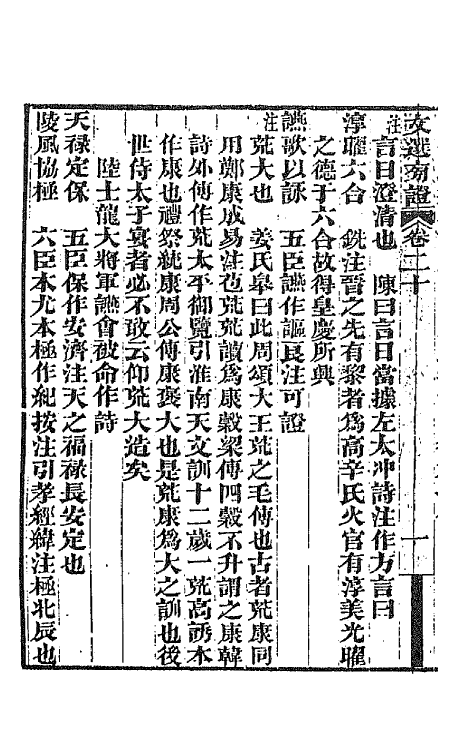 文選旁證 卷二十 一
注言曰澄清也 陳曰言曰當據左太沖詩注作方言曰
淳曜六合 銑注晉之先有黎者爲高辛氏火官有淳美光曜
之德于六合故得皇慶所興
讌歌以詠 五臣讌作謳良注可證
注荒大也 姜氏皋曰此周頌大王荒之毛傳也古者荒康同
用鄭康成易注包荒荒讀爲康穀梁傳四穀不升謂之康韓
詩外傳作荒太平御覽引淮南天文訓十二歲一荒高誘本
作康也禮祭統康周公傳康褒大也是荒康爲大之訓也後
世侍太子宴者必不敢云仰荒大造矣
陸士龍大將軍讌會被命作詩
天祿定保 五臣保作安濟注天之福祿長安定也
陵風協極 六臣本尤本極作紀按注引孝經緯注極北辰也